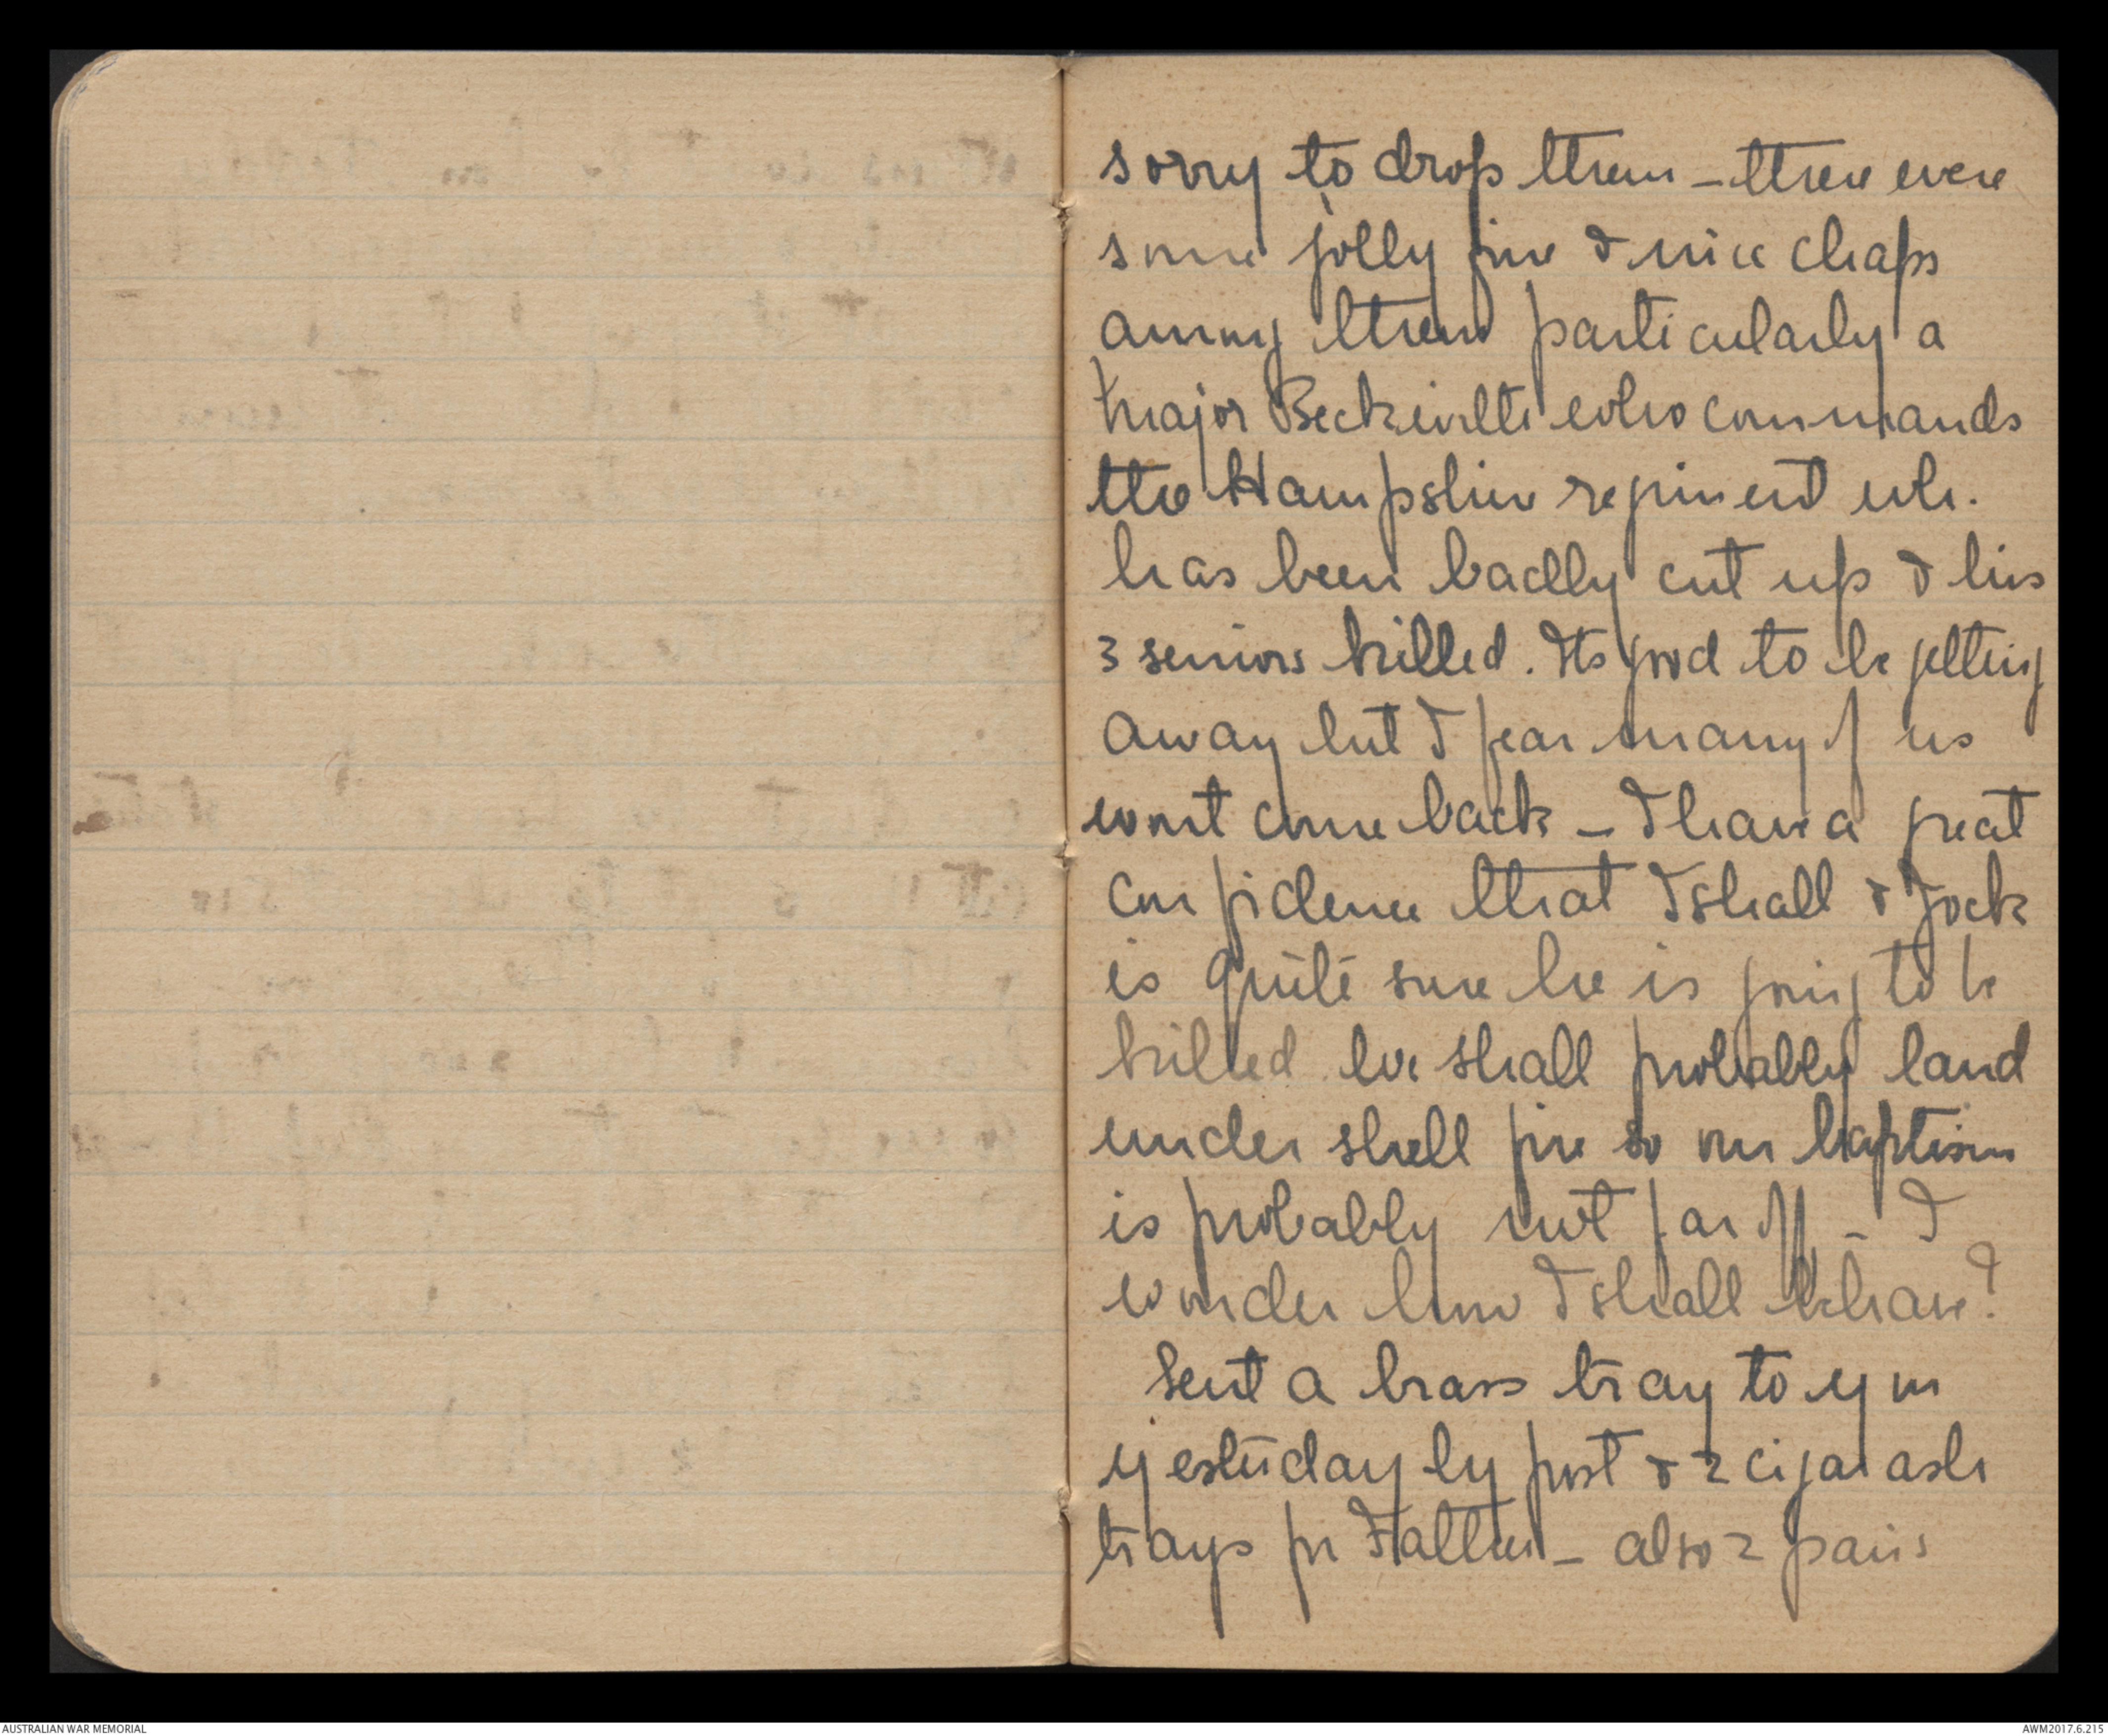 sorry to drop them - there were
some jolly fine & nice chaps
among them particularly a
Major Beckwith who commands
the Hampshire regiment wh.
has been badly cut up & his
3 seniors killed. Its good to be getting
away but I fear many of us
wont come back - I have a great
confidence that I shall & Jock
is quite sure he is going to be
killed. We shall probably land
under shell fire so our baptism
is probably not far off - I
wonder how I shall behave?
Sent a brass tray to you
yesterday by post & 2 cigar ash
trays for Father - also 2 pairs
AUSTRALIAN WAR MEMORIAL
AWM2017.6.215